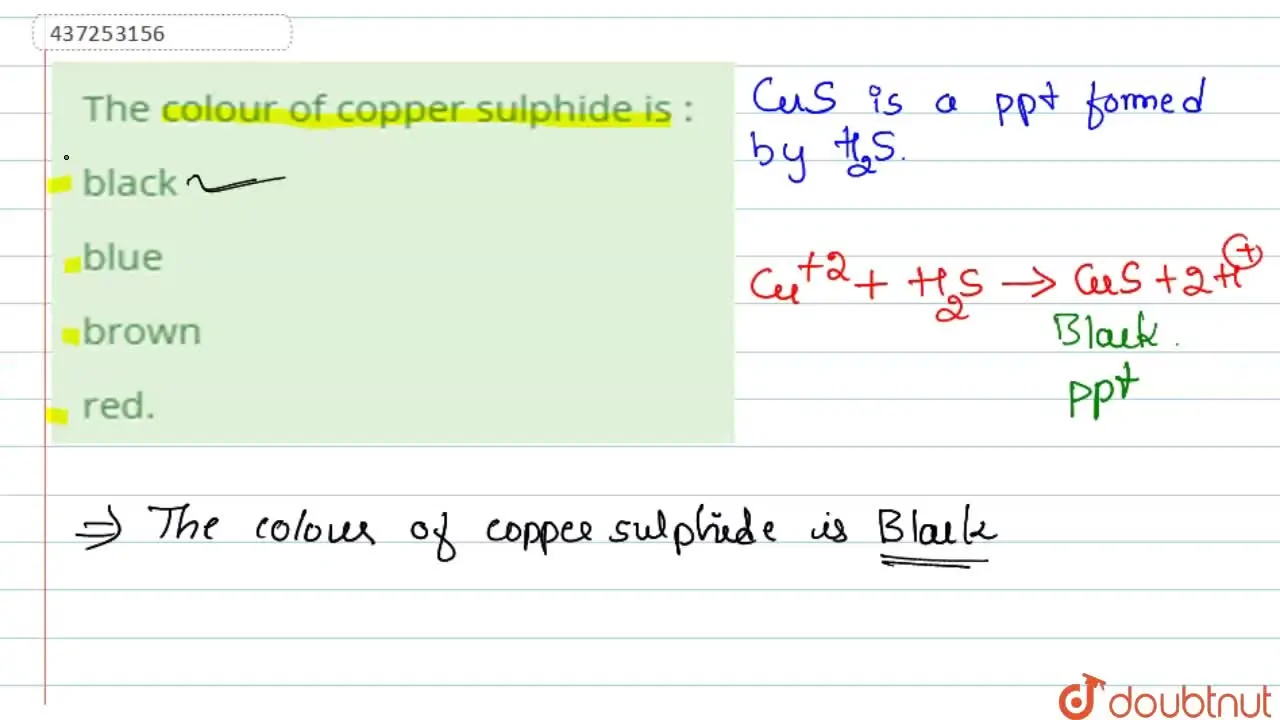 437253156
The colour of copper sulphide is :
black
blue
brown
red.
CuS is a ppt formed
by H2S.
Cu+2 + H2S → CuS + 2H+
Black.
ppt
⇒ The colour of copper sulphide is Black
doubtnut